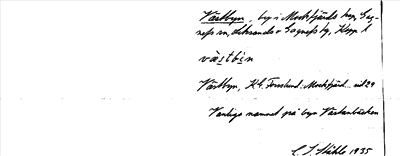 Västbyn, by i Mockfjärds sn, Gag-
nefs sn, Leksands o Gagnefs tg, Kopp. l
västbìn
Västbyn, K.G. Forslund: Mockfjärd sid 29
Vanliga namnet på byn Västanbäcken
C. S. Ståhle 1935